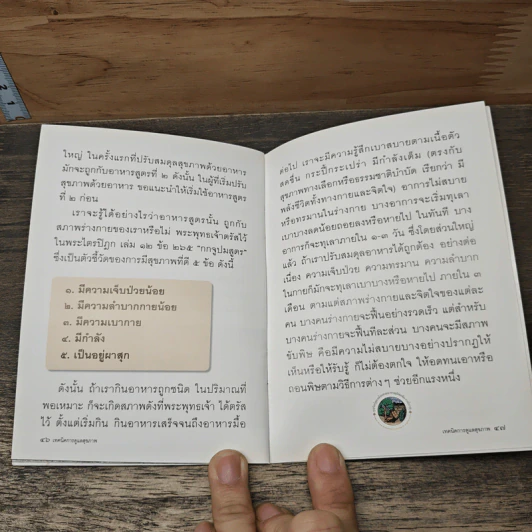 ใหญ่ ในครั้งแรกที่ปรับสมดุลสุขภาพด้วยอาหาร
มักจะถูกกับอาหารสูตรที่ ๒ ดังนั้น ในผู้ที่เริ่มปรับ
สุขภาพด้วยอาหาร ขอแนะนำให้เริ่มใช้อาหารสูตร
ที่ ๒ ก่อน
เราจะรู้ได้อย่างไรว่าอาหารสูตรนั้น ถูกกับ
สภาพร่างกายของเราหรือไม่ พระพุทธเจ้าตรัสไว้
ในพระไตรปิฎก เล่ม ๑๒ ข้อ ๒๖๕ "กกจูปมสูตร"
ซึ่งเป็นตัวชี้วัดของการมีสุขภาพที่ดี ๕ ข้อ ดังนี้
๑. มีความเจ็บป่วยน้อย
๒. มีความลำบากกายน้อย
๓. มีความเบากาย
๔. มีกำลัง
๕. เป็นอยู่ผาสุก
ดังนั้น ถ้าเรากินอาหารถูกชนิด ในปริมาณที่
พอเหมาะ ก็จะเกิดสภาพดังที่พระพุทธเจ้า ได้ตรัส
ไว้ ตั้งแต่เริ่มกิน กินอาหารเสร็จจนถึงอาหารมื้อ
๔๖ เทคนิคการดูแลสุขภาพ
ต่อไป เราจะมีความรู้สึกเบาสบายตามเนื้อตัว
สดชื่น กระปรี้กระเปร่า มีกำลังเต็ม (ตรงกับ
สุขภาพทางเลือกหรือธรรมชาติบำบัด เรียกว่า มี
พลังชีวิตทั้งทางกายและจิตใจ) อาการไม่สบาย
หรือทรมานในร่างกาย บางอาการจะเริ่มทุเลา
เบาบางลดน้อยถอยลงหรือหายไป ในทันที บาง
อาการก็จะทุเลาภายใน ๑-๓ วัน ซึ่งโดยส่วนใหญ่
แล้ว ถ้าเราปรับสมดุลอาหารได้ถูกต้อง อย่างต่อ
เนื่อง ความเจ็บป่วย ความทรมาน ความลำบาก
ในกายก็มักจะทุเลาเบาบางหรือหายไป ภายใน ๓
เดือน ตามแต่สภาพร่างกายและจิตใจของแต่ละ
คน บางคนร่างกายจะฟื้นอย่างรวดเร็ว แต่สำหรับ
บางคนร่างกายจะฟื้นทีละส่วน บางคนจะมีสภาพ
ขับพิษ คือมีความไม่สบายบางอย่างปรากฏให้
เห็นหรือให้รับรู้ ก็ไม่ต้องตกใจ ให้อดทนเอาหรือ
ถอนพิษตามวิธีการต่างๆ ช่วยอีกแรงหนึ่ง
เทคนิคการดูแลสุขภาพ ๔๗